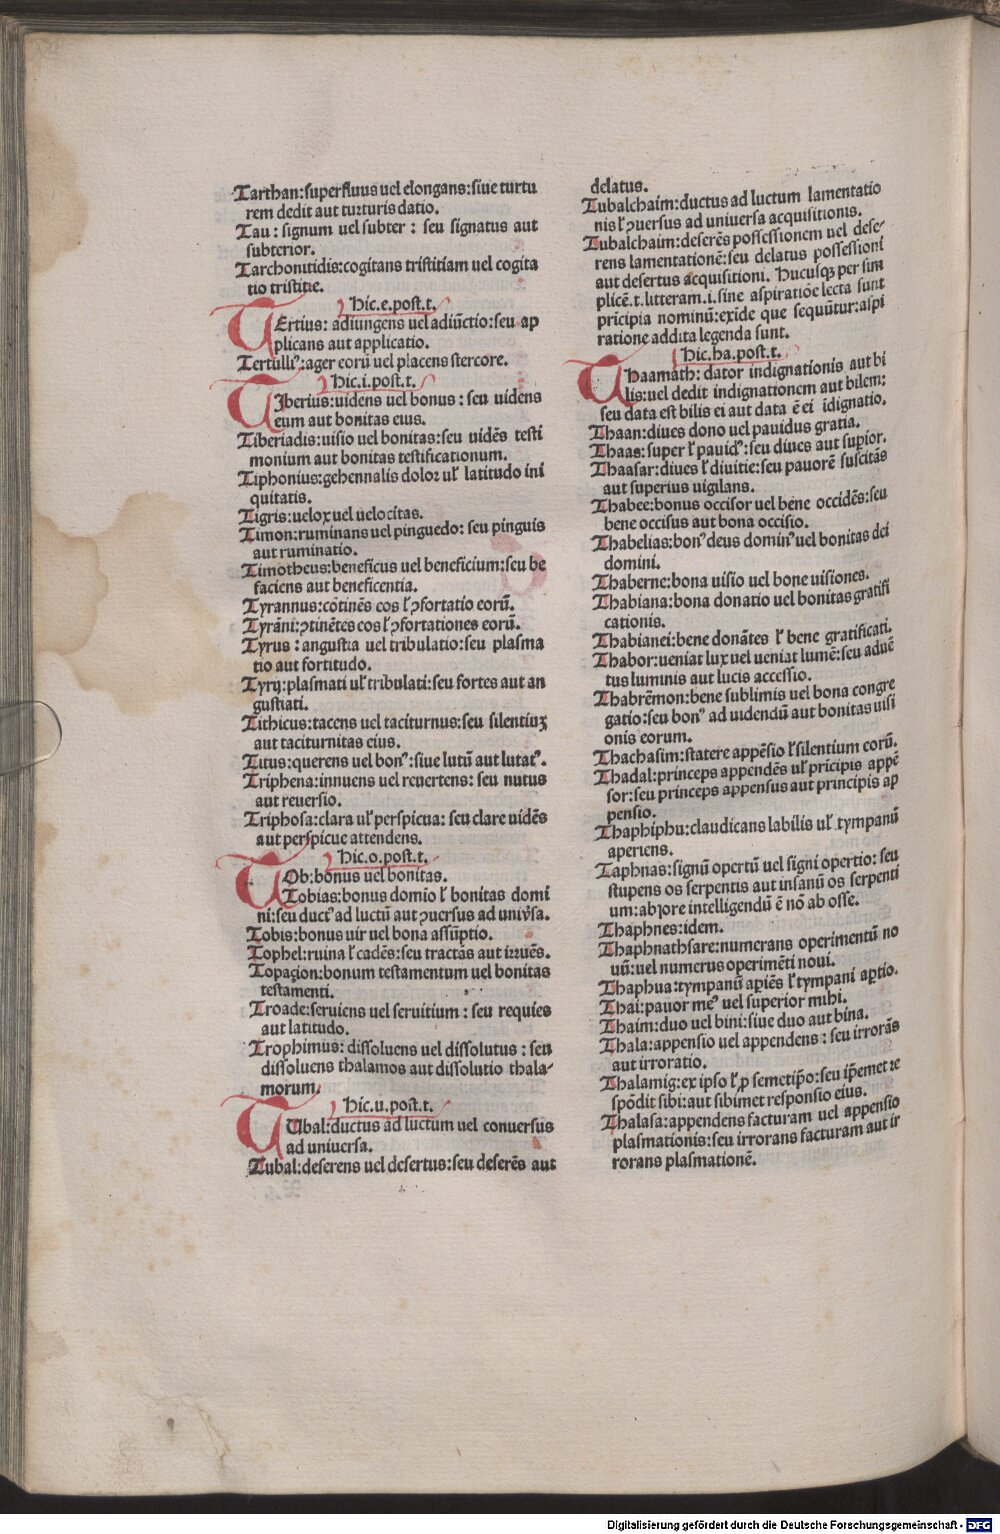 Tarthan:superfluus uel elongans:siue turtu
rem dedit aut turturis datio.
Tau : signum uel subter : seu signatus aut
subterior.
Tarchonitidis:cogitans tristitiam uel cogita
tio tristitie.
Hic.e.post.t.
TErtius: adiungens uel adiūctio:seu ap
plicans aut applicatio.
Tertullꝰ:ager eorū uel placens stercore.
Hic.i.post.t.
TIberius:uidens uel bonus : seu uidens
eum aut bonitas eius.
Tiberiadis:uisio uel bonitas:seu uidēs testi
monium aut bonitas testificationum.
Tiphonius:gehennalis dolor uł latitudo ini
quitatis.
Tigris:uelox uel uelocitas.
Timon:ruminans uel pinguedo: seu pinguis
aut ruminatio.
Timotheus:beneficus uel beneficium:seu be
faciens aut beneficentia.
Tyrannus:cōtinēs eos ł ꝯfortatio eorū.
Tyrāni:ꝯtinētes eos ł ꝯfortationes eorū.
Tyrus : angustia uel tribulatio:seu plasma
tio aut fortitudo.
Tyrij:plasmati uł tribulati:seu fortes aut an
gustiati.
Tithicus:tacens uel taciturnus:seu silentiuꝫ
aut taciturnitas eius.
Titus:querens uel bonꝰ:siue lutū aut lutatꝰ.
Triphena:innuens uel reuertens: seu nutus
aut reuersio.
Triphosa:clara uł perspicua: seu clare uidēs
aut perspicue attendens.
Hic.o.post.t.
TOb:bonus uel bonitas.
Tobias:bonus domīo ł bonitas domi
ni:seu ductꝰ ad luctū aut ꝯuersus ad uniṽsa.
Tobis:bonus uir uel bona assūptio.
Tophel:ruina ł cadēs:seu tractās aut irruēs.
Topazion:bonum testamentum uel bonitas
testamenti.
Troade:seruiens uel seruitium : seu requies
aut latitudo.
Trophimus: dissoluens uel dissolutus : seu
dissoluens thalamos aut dissolutio thala-
morum.
Hic.u.post.t.
TUbal:ductus ad luctum uel conuersus
ad uniuersa.
Tubal:deserens uel desertus:seu deserēs aut
delatus.
Tubalchaim:ductus ad luctum lamentatio
nis ł ꝯuersus ad uniuersa acquisitionis.
Tubalchaim:deserēs possessionem uel dese-
rens lamentationē:seu delatus possessioni
aut desertus acquisitioni. Hucusqꝫ per sim
plicē.t.litteram.i.sine aspiratiōe lecta sunt
prīcipia nominū:exīde que sequūtur:aspi
ratione addita legenda sunt.
Hic.ha.post.t.
THaamath: dator indignationis aut bi
lis:uel dedit indignationem aut bilem:
seu data est bilis ei aut data ē ei īdignatio.
Thaan:diues dono uel pauidus gratia.
Thaas:super ł pauidꝰ:seu diues aut supior.
Thaasar:diues ł diuitie:seu pauorē suscitās
aut superius uigilans.
Thabee:bonus occisor uel bene occidēs:seu
bene occisus aut bona occisio.
Thabelias:bonꝰ deus dominꝰ uel bonitas dei
domini.
Thaberne:bona uisio uel bone uisiones.
Thabiana:bona donatio uel bonitas gratifi
cationis.
Thabianei:bene donātes ł bene gratificati.
Thabor:ueniat lux uel ueniat lumē:seu aduē
tus luminis aut lucis accessio.
Thabrēmon:bene sublimis uel bona congre
gatio:seu bonꝰ ad uidendū aut bonitas uisi
onis eorum.
Thachasim:statere appēsio ł silentium eorū.
Thadal:princeps appendēs uł prīcipis appē
sor:seu princeps appensus aut principis ap
pensio.
Thaphiphu:claudicans labilis uł tympanū
aperiens.
Taphnas:signū opertū uel signi opertio: seu
stupens os serpentis aut insanū os serpenti
um:ab ore intelligendū ē nō ab osse.
Thaphnes:idem.
Thaphnathsare:numerans operimentū no
uū:uel numerus operimēti noui.
Thaphua:tympanū apiēs ł tympani aptio.
Thai:pauor meꝰ uel superior mihi.
Thaim:duo uel bini:siue duo aut bina.
Thala:appensio uel appendens : seu irrorās
aut irroratio.
Thalamig:ex ipso ł ꝓ semetipo:seu ipemet re
spōdit sibi:aut sibimet responsio eius.
Thalasa:appendens facturam uel appensio
plasmationis:seu irrorans facturam aut ir
rorans plasmationē.
Digitalisierung gefördert durch die Deutsche Forschungsgemeinschaft - DFG